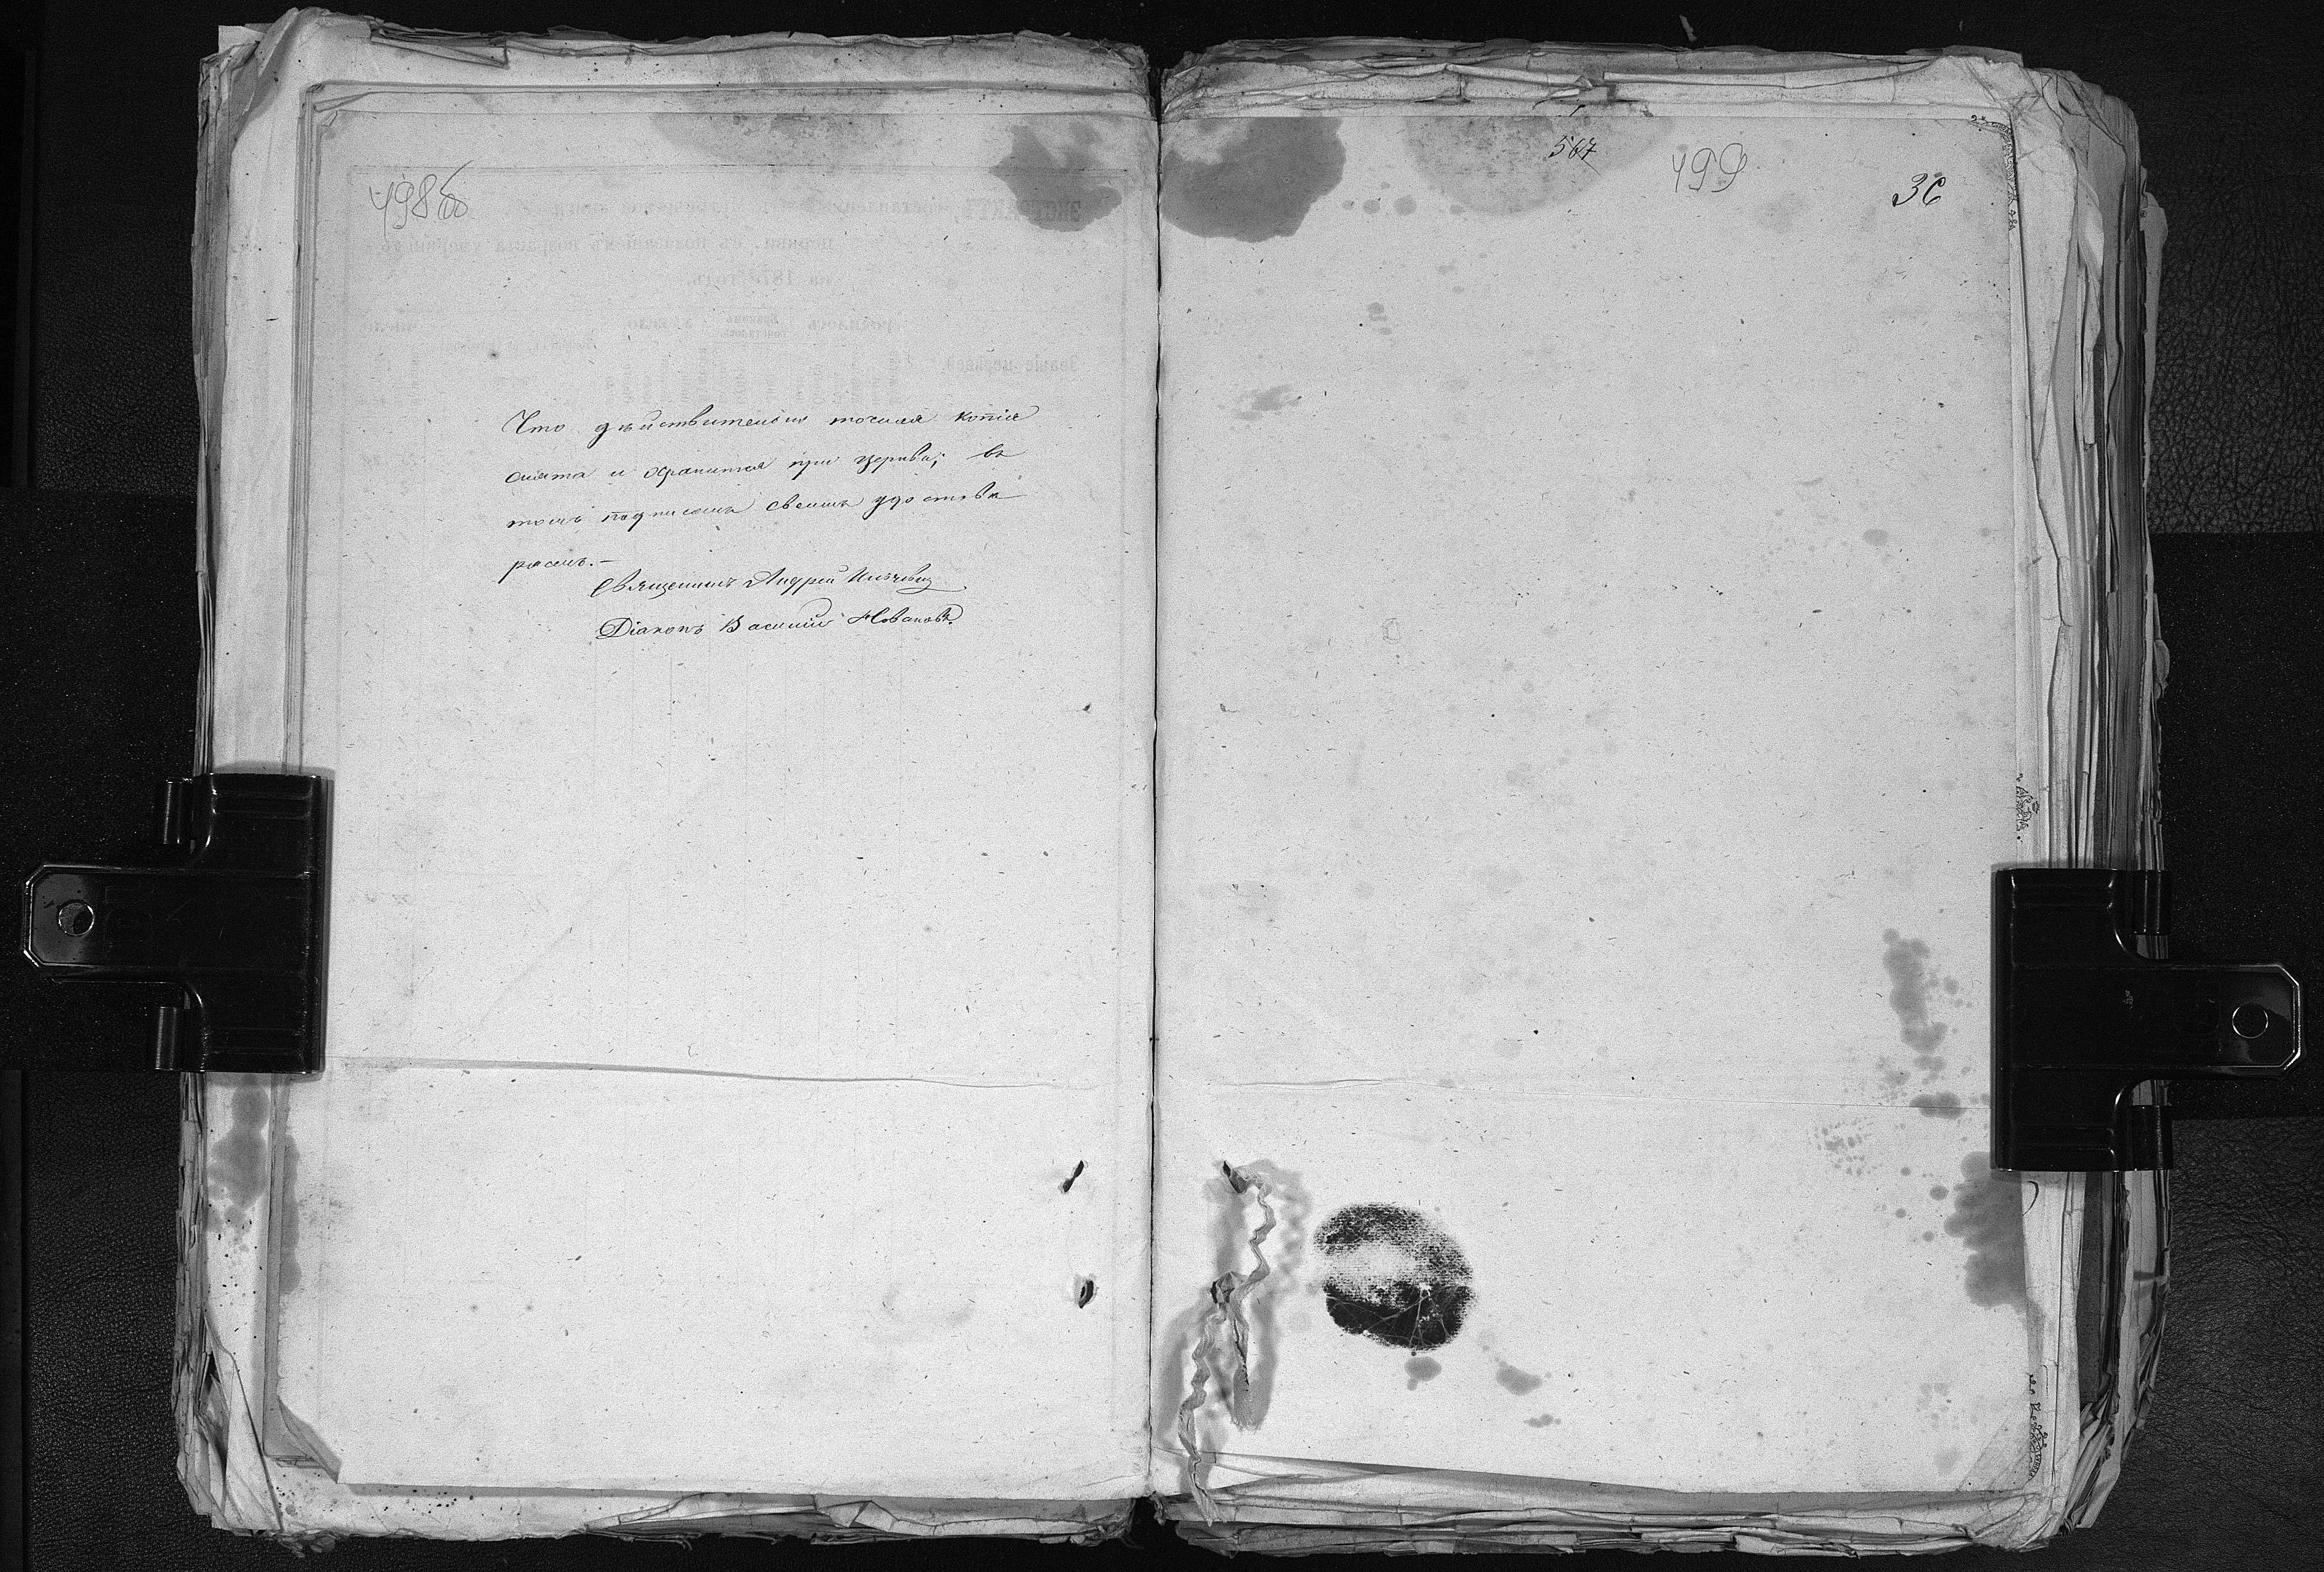 498об
Что дѣйствительно точная копія
снята и хранится при церкви; въ
томъ подписомъ своимъ удостовѣ
ряемъ.—
Священникъ Андрей
Діаконъ Василий Новаковъ.
567
499
36